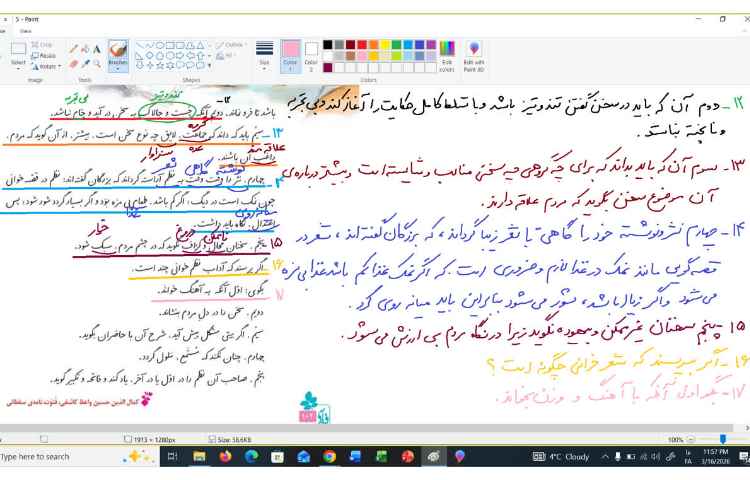 5 - Paint
View
Select
Crop
Resize
Rotate
Brushes
Outline
Fill
Size
Color 1
Color 2
Edit colors
Edit with Paint 3D
Image
Tools
Shapes
Colors
۱۲- دوم آن که باید در سخن گفتن تند و تیز باشد و با تسلط کامل حکایت را آغاز کند و بی تجربه
و ناپخته نباشد.
۱۳- سوم آن که باید بداند که برای چه گروهی چه سخنی مناسب و شایسته است و بیشتر درباره‌ی
آن موضوع سخن بگوید که مردم علاقه دارند.
۱۴- چهارم نثر و نوشته خود را گاهی با شعر زیبا گرداند، که بزرگان گفته‌اند، شعر در
قصه گویی مانند نمک در غذا لازم و ضروری است. که اگر نمک غذا کم باشد غذا بی مزه
می شود و اگر زیاد باشد، شور می شود بنابراین باید میانه روی کرد.
۱۵- پنجم سخنان غیر ممکن و بیهوده نگوید زیرا در نگاه مردم بی ارزش می شود.
۱۶- اگر بپرسند که شعر خوانی چگونه است؟
۱۷- بگو اول آنکه با آهنگ و وزن بخواند.
تند و تیز
بی تجربه
باشد تا فرو نماند. دوم آنکه چست و چالاک به سخن در آید و خام نباشد.
۱۲
گروه
سیم باید که داند که جماعت، لایق چه نوع سخن است. بیشتر، از آن گوید که مردم،
۱۳
علاقه مند
سزاوار
راغب آن باشند.
نوشته گاهی شعر
چهارم. نثر را وقت وقت به نظم آراسته گرداند که بزرگان گفته‌اند: نظم در قصه‌خوانی
چون نمک است در دیگ، اگر کم باشد، طعام بی مزه بود و اگر بسیار گردد شور شود، پس
میانه روی
غذا
اعتدال نگاه باید داشت.
ناممکن
دروغ
خوار
پنجم. سخنان محال و گزاف نگوید که در چشم مردم، سبک شود.
۱۵
اگر پرسند که آداب نظم‌خوانی چند است،
۱۶
بگوی: اول آنکه به آهنگ خواند.
۷
دویم. سخن را در دل مردم بنشاند.
سیم. اگر بیتی مشکل پیش آید، شرح آن با حاضران بگوید.
چهارم. چنان نکند که مستمع، ملول گردد.
پنجم. صاحب آن نظم را در اول یا در آخر، یاد کند و فاتحه و تکبیر گوید.
کمال الدین حسین واعظ کاشفی، فتوت نامه‌ی سلطانی
۱۰۲
1913 × 1280px
Size: 56.6KB
100%
Type here to search
4°C Cloudy
FA
11:57 PM
3/16/2026